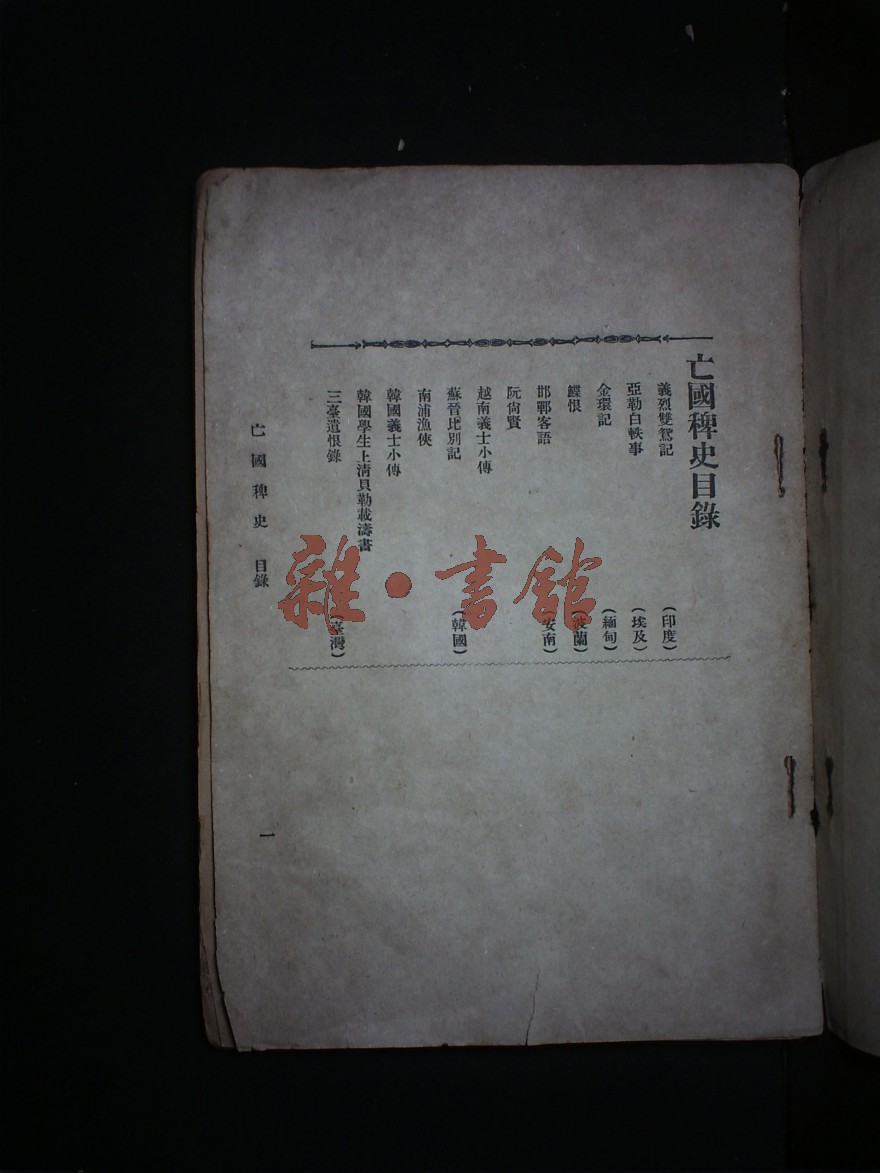 亡國稗史目錄
義烈雙鴛記 (印度)
亞勒白軼事 (埃及)
金環記 (緬甸)
鰈恨 (波蘭)
邯鄲客語 (安南)
阮尙賢
越南義士小傳
蘇晉比別記 (韓國)
南浦漁俠
韓國義士小傳
韓國學生上清貝勒載濤書
三臺遺恨錄 (臺灣)
亡國稗史 目錄
一
雜·書館